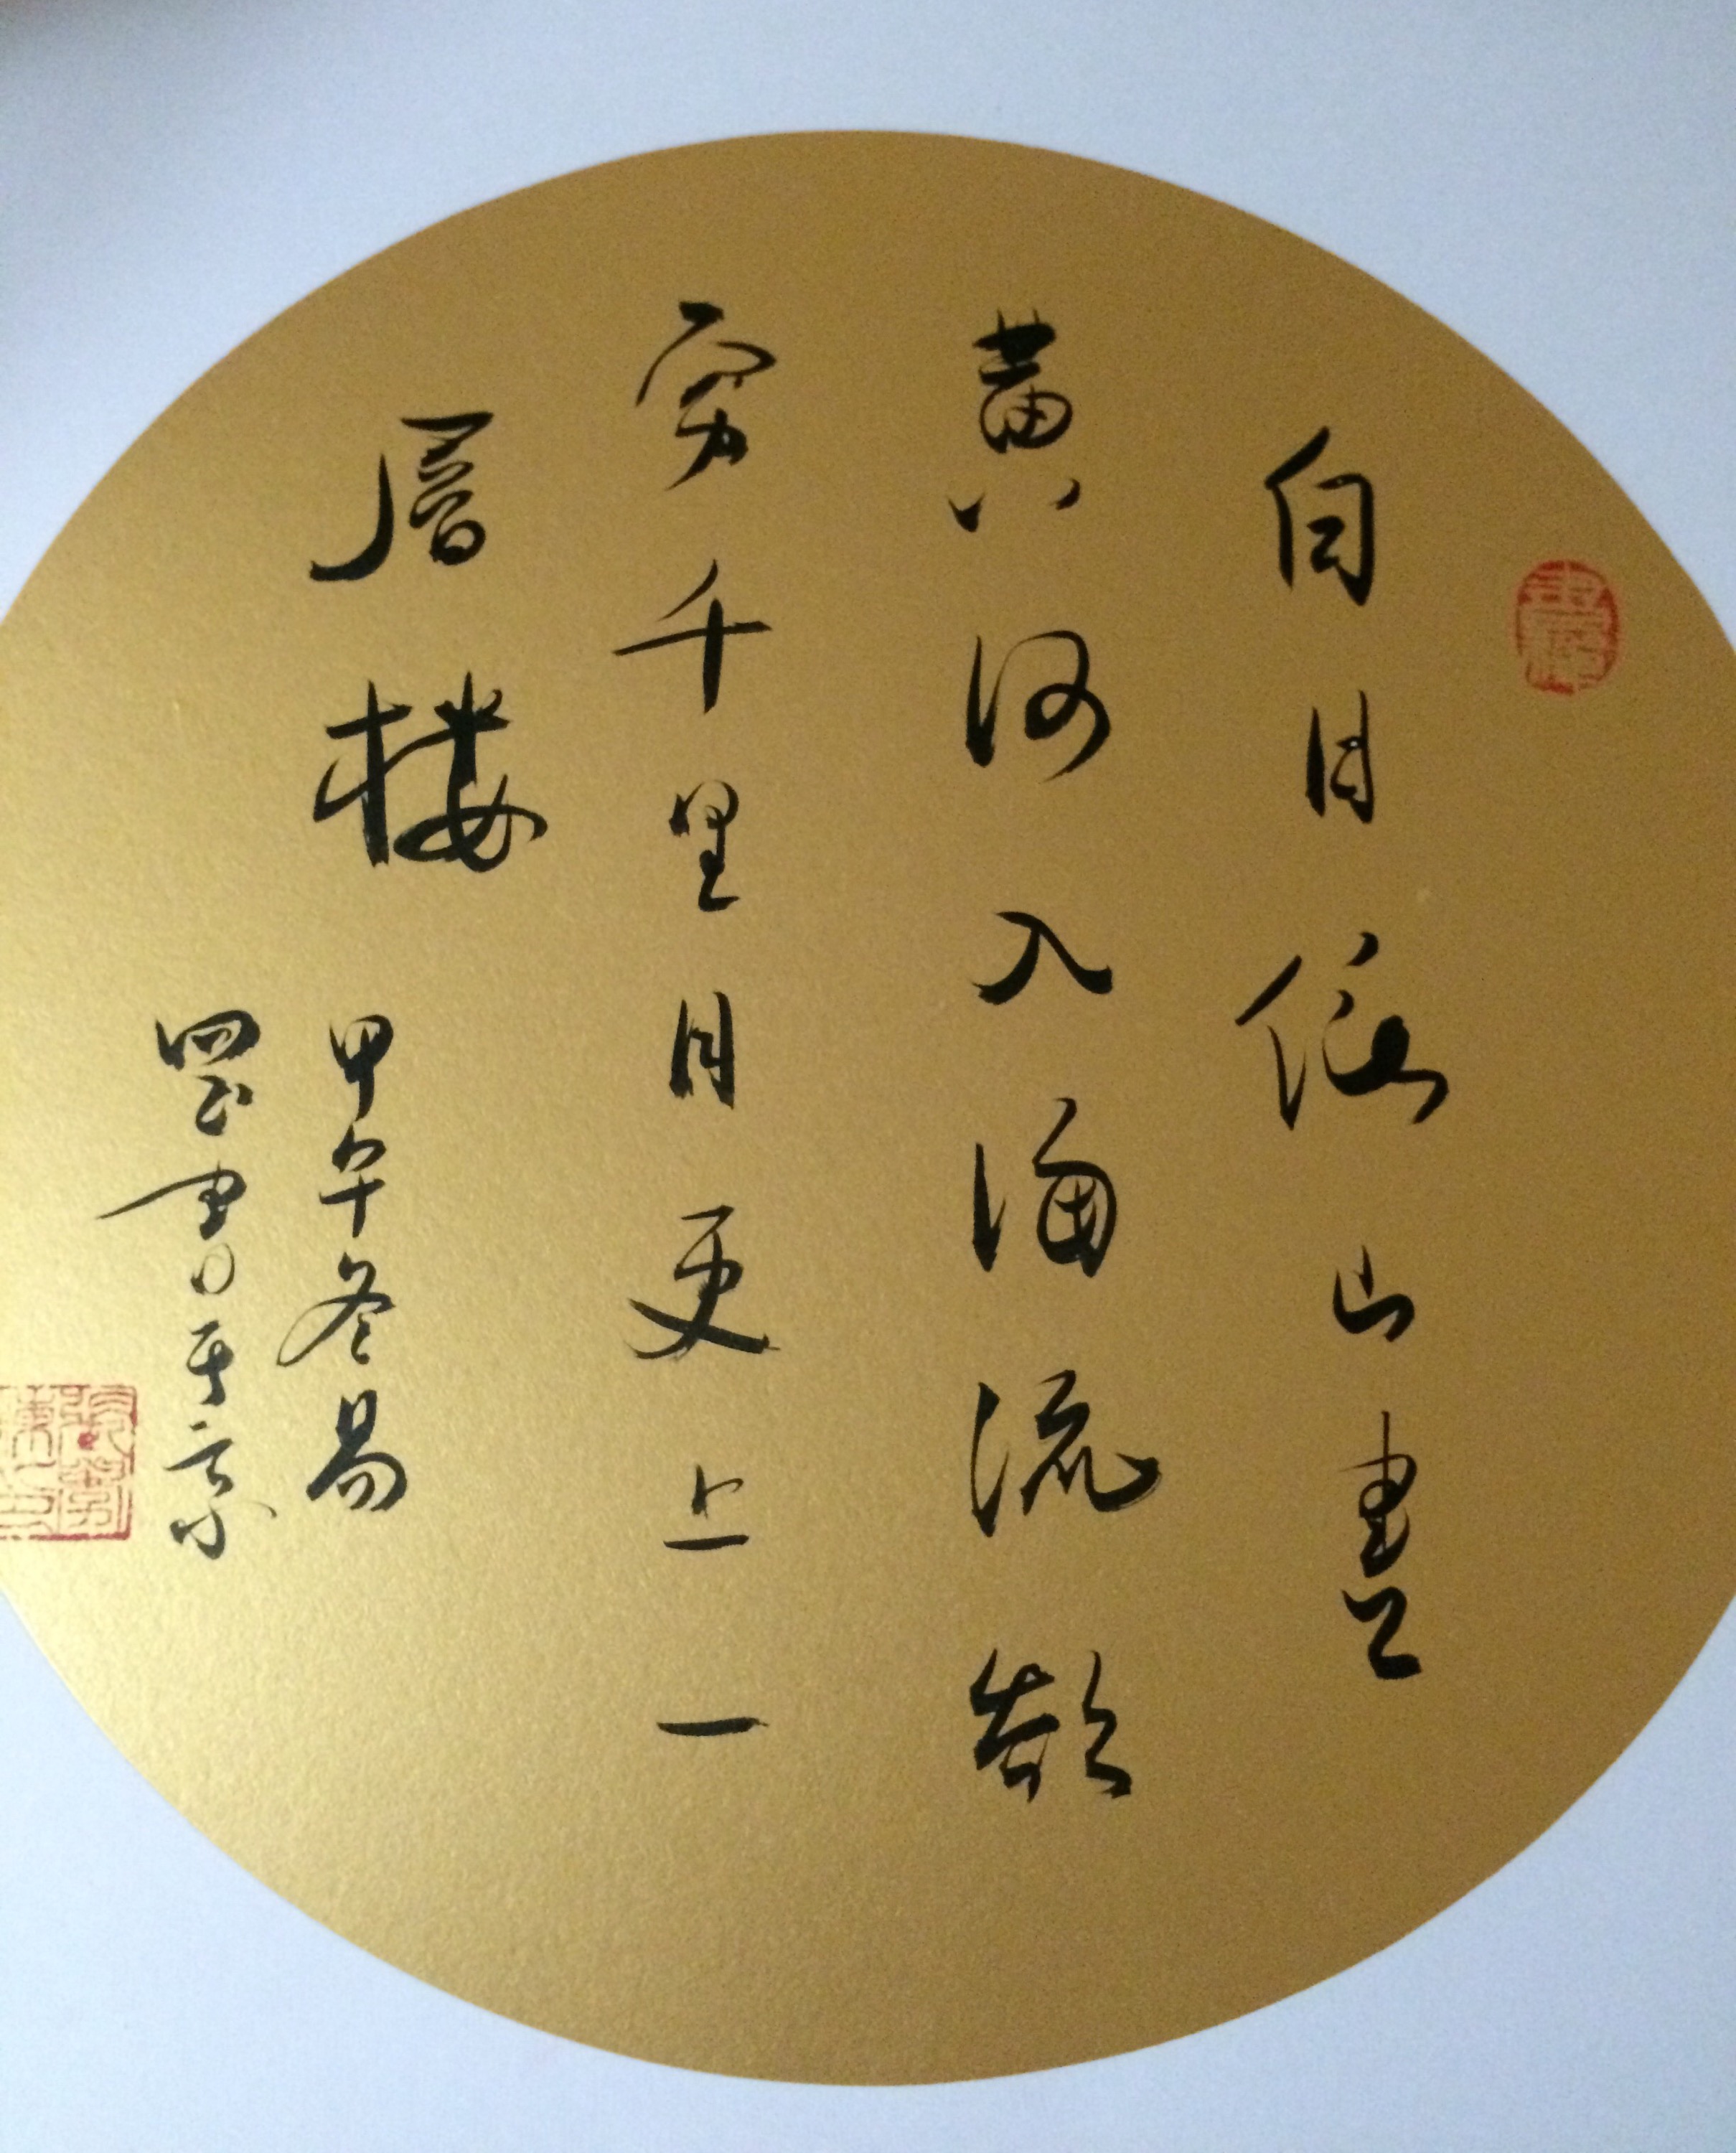 白日依山尽
黄河入海流欲
穷千里目更上一
层楼
甲午冬易
书于京